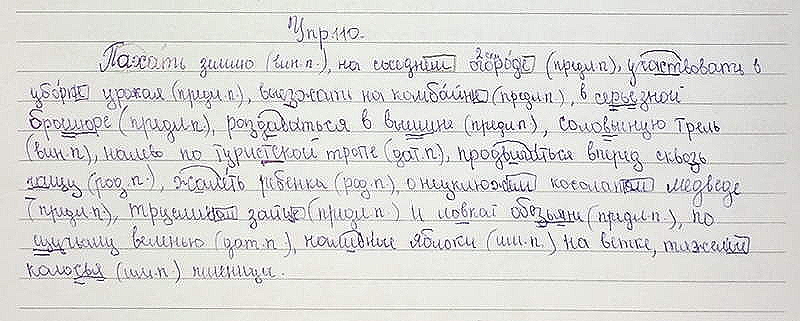 Упр.110.
Пахать землю (вин.п.), на соседнем огороде (предл.п), участвовать в
уборке урожая (предл.п.), выезжать на комбайне (предл.п.), в серьезной
брошюре (предл.п), раздаваться в вышине (предл.п), соловьиную трель
(вин.п), налево по туристской тропе (дат.п), продвигаться вперед сквозь
чащу (род.п.), жалеть ребенка (род.п), о неуклюжем косолапом медведе
(предл.п), трусливой зайце (предл.п) и ловкой обезьяне (предл.п), по
щучьему веленью (дат.п), наливные яблоки (им.п) на ветке, тяжелые
колосья (им.п) пшеницы.